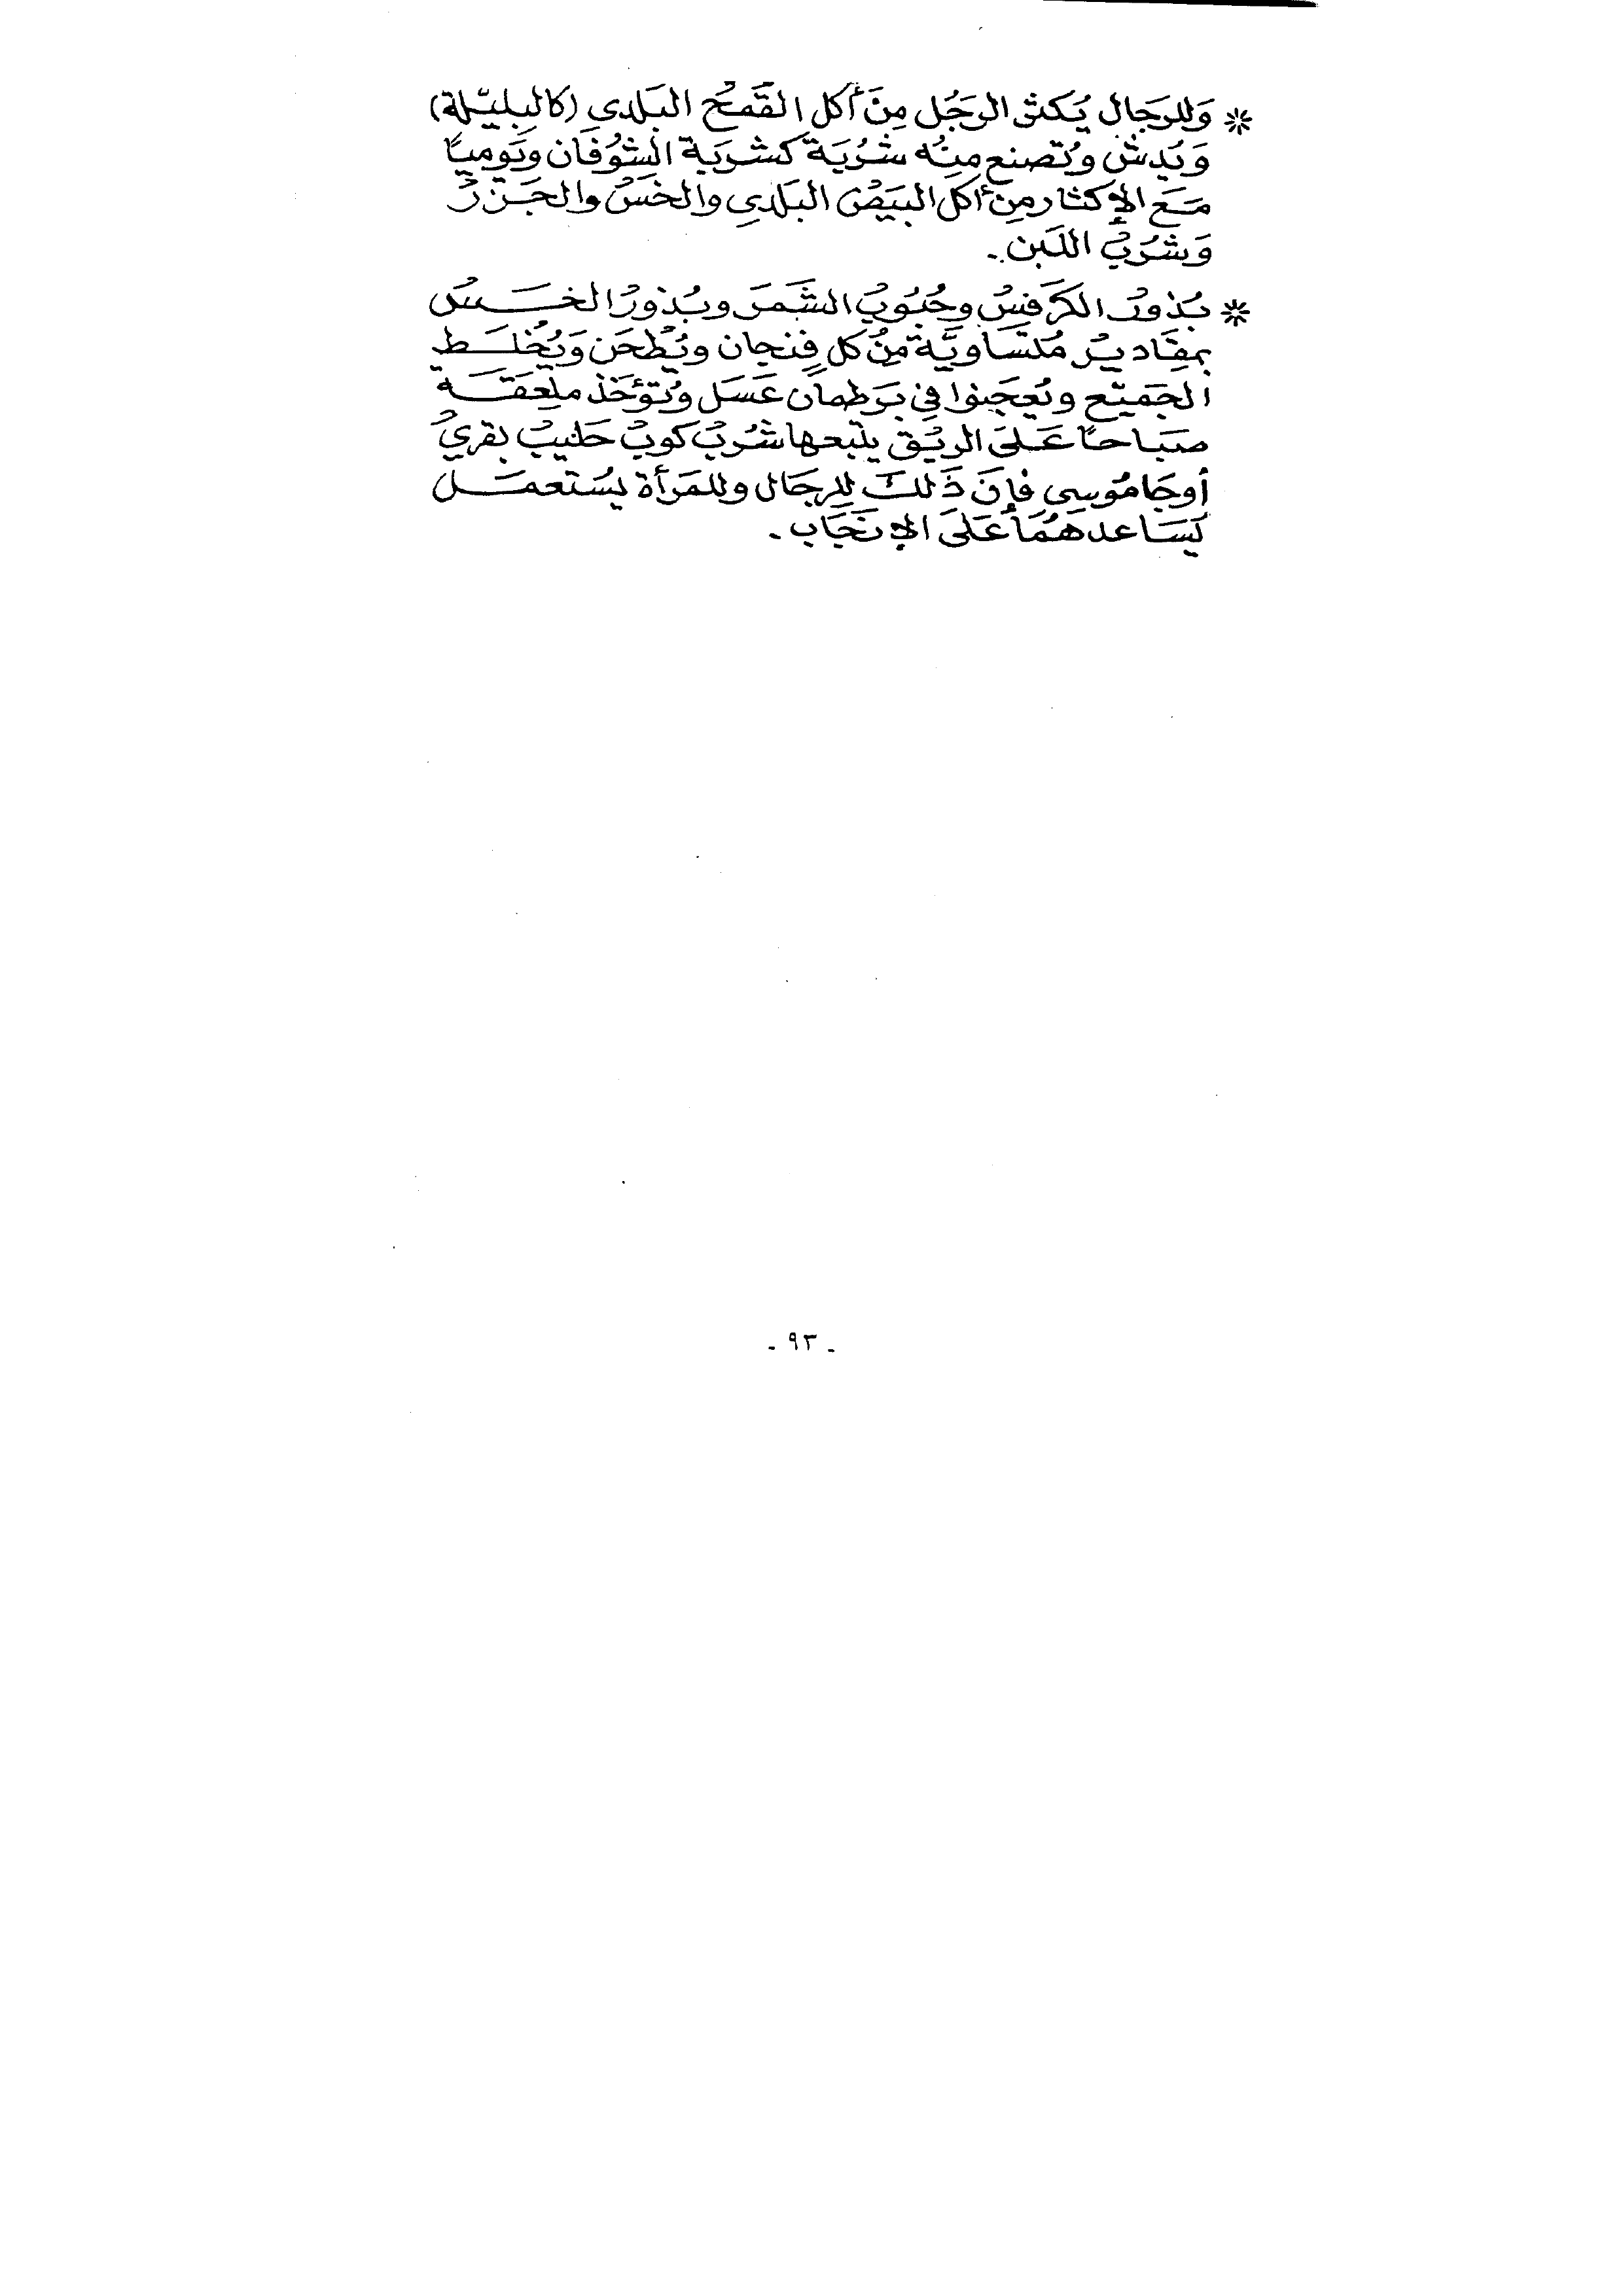 * وَللرجَال يَكثر الرجُل مِنَ أكل القَمحُ البَلدى (كالبليّلة)
وَيُدشُ وتُصنع مِنُه شُربَة كَشُربَة الشوُفَان ويَومياً
مَع الإكثار مِن أكل البَيَضُ البَلدي والخَسُ والجَزرُ
وَشرُبُ اللبَن.
* بُذورُ الكرَفسُ وحُبُوبُ الشَمَر وبُذورُ الخَسُ
بمقَاديرُ مُتسَاويَّة مِنُ كل فِنجان ويُطحَن وَيُخلَط
الجَميّع ويُعجَنوا فِي بَرطمان عَسَل وتُؤخَذ ملعَقَة
صَبَاحاً عَلىَ الريُق يتبعها شُربُ كوبُ حَليبُ بقريُ
أوجَامُوسِي فإنَ ذَلكَ للِرجَال وللمَرأة يسُتعمَل
يَسَاعدهُمَا عَلىَ الإنجَاب.
- ٩٣ -